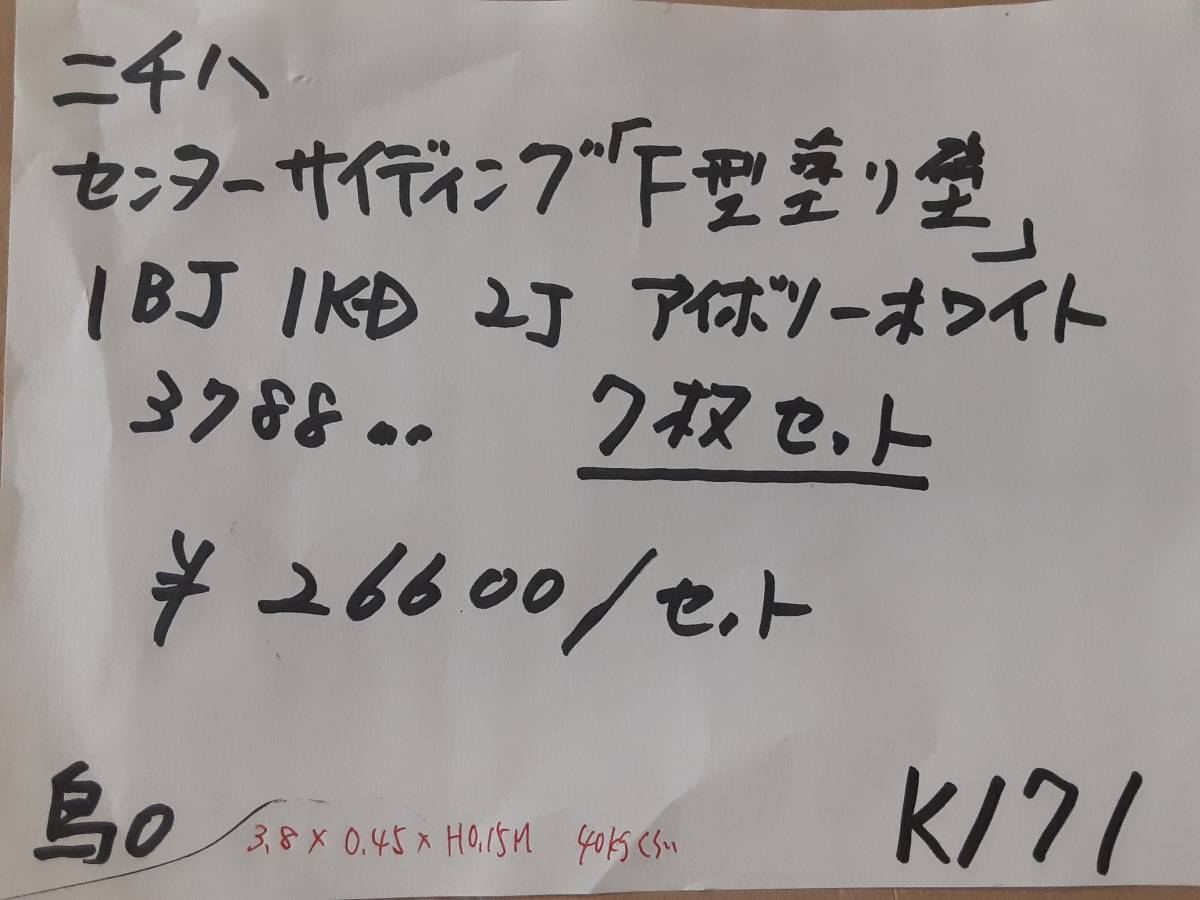 ニチハ
センターサイディング「F型塗り壁」
1BJ 1KD 2J アイボリーホワイト
3788... 7枚セット
¥26600/セット
鳥0 K171
3.8×0.45×H0.15M 40kgくらい